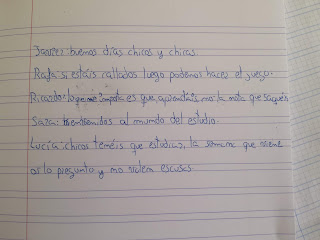 Javier: buenos dias chicos y chicas.
Rafa: si estáis callados luego podemos hacer el juego.
Ricardo: lo que me importa es que aprendáis no la nota que saquéis
Sara: Bienvenidos al mundo del estudio.
Lucía: chicos tenéis que estudiar, la semana que viene
os lo pregunto y no valen escusas.